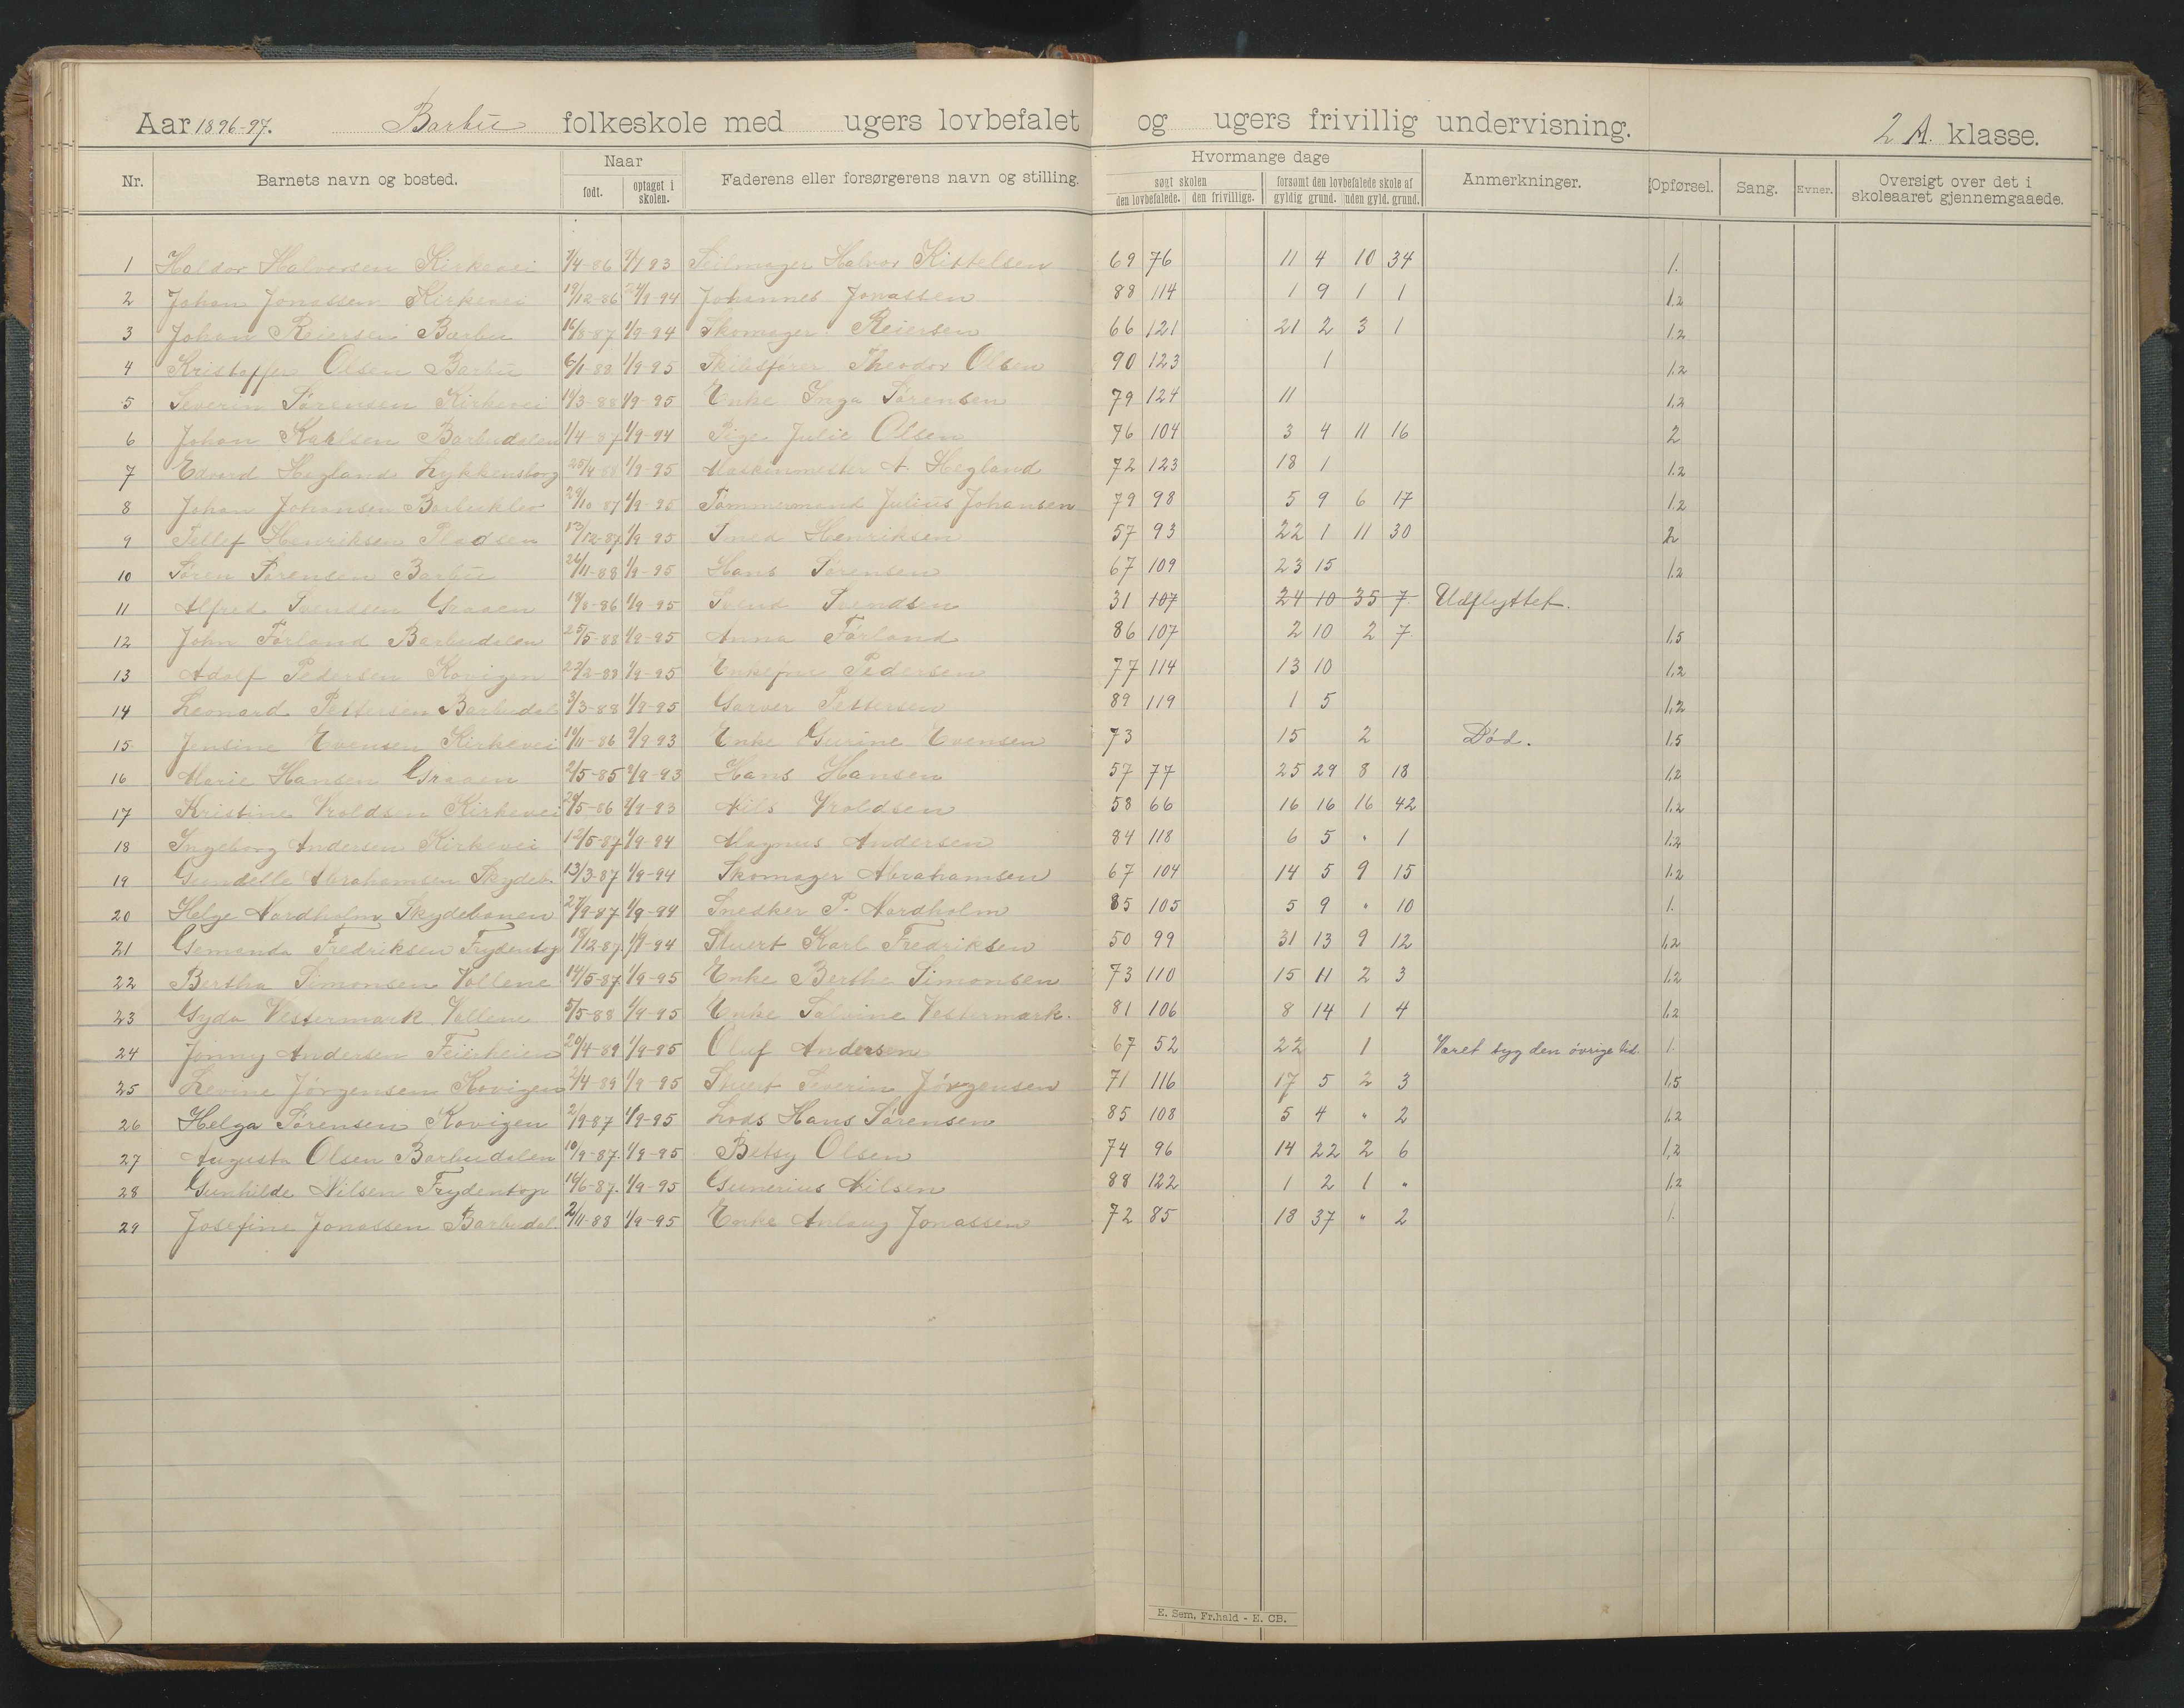 Aar 1896-97. Barbu folkeskole med ugers lovbefalet og ugers frivillig undervisning. 2 A. klasse.
Nr. Barnets navn og bosted. Naar født. optaget i skolen. Faderens eller forsørgerens navn og stilling. Hvormange dage søgt skolen den lovbefalede. den frivillige. forsømt den lovbefalede skole af gyldig grund. uden gyld. grund. Anmerkninger. Opførsel. Sang. Evner. Oversigt over det i skoleaaret gjennemgaaede.
1 Haldor Halvorsen Kirkevei 7/4-86 93 Seilmager Halvor Kittelsen 69 76 11 4 10 34 1.
2 Johan Jonassen Kirkevei 19/12-86 24/9-94 Johannes Jonassen 88 114 1 9 1 1 1,2
3 Johan Reiersen Barbu 16/8-87 1/9-94 Skomager Reiersen 66 121 21 2 3 1 1,2
4 Kristoffer Olsen Barbu 6/1-88 1/9-95 Skibsfører Theodor Olsen 90 123 1 1,2
5 Severin Sørensen Kirkevei 14/3-88 1/9-95 Enke Inga Sørensen 79 124 11 1,2
6 Johan Karlsen Barbudalen 1/4-87 1/9-94 Pige Julie Olsen 76 104 3 4 11 16 2
7 Edvard Hegland Lykkensborg 25/4-88 1/9-95 Maskinmester A. Hegland 72 123 18 1 1,2
8 Johan Johansen Barbuklev 29/10-87 1/9-95 Tømmermand Julius Johansen 79 98 5 9 6 17 1,2
9 Tellef Henriksen 13/12-87 1/9-95 Henriksen 57 93 22 1 11 30 2
10 Søren Sørensen Barbu 26/11-88 1/9-95 Hans Sørensen 67 109 23 15 1,2
11 Alfred Svendsen Graaen 18/8-86 1/9-95 Svend Svendsen 31 107 24 10 35 7 Udflyttet.
12 John Førland Barbudalen 25/5-88 1/9-95 Anna Førland 86 107 2 10 2 7 1,5
13 Adolf Pedersen Kovigen 23/2-88 1/9-95 Enkefru Pedersen 77 114 13 10 1,2
14 Leonard Pettersen Barbudal 3/3-88 1/9-95 Garver Pettersen 89 119 1 5 1,2
15 Jensine Evensen Kirkevei 19/11-86 2/9-93 Enke Gurine Evensen 73 15 2 Død. 1,5
16 Marie Hansen Graaen 2/5-85 2/9-93 Hans Hansen 57 77 25 29 8 18 1,2
17 Kristine Vroldsen Kirkevei 29/5-86 2/9-93 Nils Vroldsen 58 66 16 16 16 42 1,2
18 Ingeborg Andersen Kirkevei 12/5-87 1/9-94 Magnus Andersen 84 118 6 5 " 1 1,2
19 Gundelle Abrahamsen Skydeb. 13/3-87 1/9-94 Skomager Abrahamsen 67 104 14 5 9 15 1,2
20 Helge Nordholm Skydebanen 27/9-87 1/9-94 Snedker P. Nordholm 85 105 5 9 " 10 1.
21 Fredriksen Frydentop 18/12-87 1/9-94 Stuert Karl Fredriksen 50 99 31 13 9 12 1,2
22 Bertha Simonsen Vollene 14/5-87 1/9-95 Enke Berthe Simonsen 73 110 15 11 2 3 1,2
23 Gyda Vestermark Vollene 5/5-88 1/9-95 Enke Salvine Vestermark. 81 106 8 14 1 4 1,2
24 Jonny Andersen Feierheien 20/4-89 1/9-95 Oluf Andersen 67 52 22 1 Været syg den øvrige tid. 1.
25 Levine Jørgensen Kovigen 2/4-89 1/9-95 Stuert Severin Jørgensen 71 116 17 5 2 3 1,5
26 Helga Sørensen Kovigen 2/9-87 1/9-95 Lods Hans Sørensen 85 108 5 4 " 2 1,2
27 Augusta Olsen Barbudalen 10/9-87. 1/9-95 Betsy Olsen 74 96 14 22 2 6 1,2
28 Gunhilde Nilsen Frydentop 16/6-87. 1/9-95 Gunerius Nilsen 88 122 1 2 1 " 1,2
29 Josefine Jonassen Barbudal. 2/11-88 1/9-95 Enke Anlaug Jonassen 72 85 18 37 " 2 1.
E. Sem, Fr.hald - E. CB.